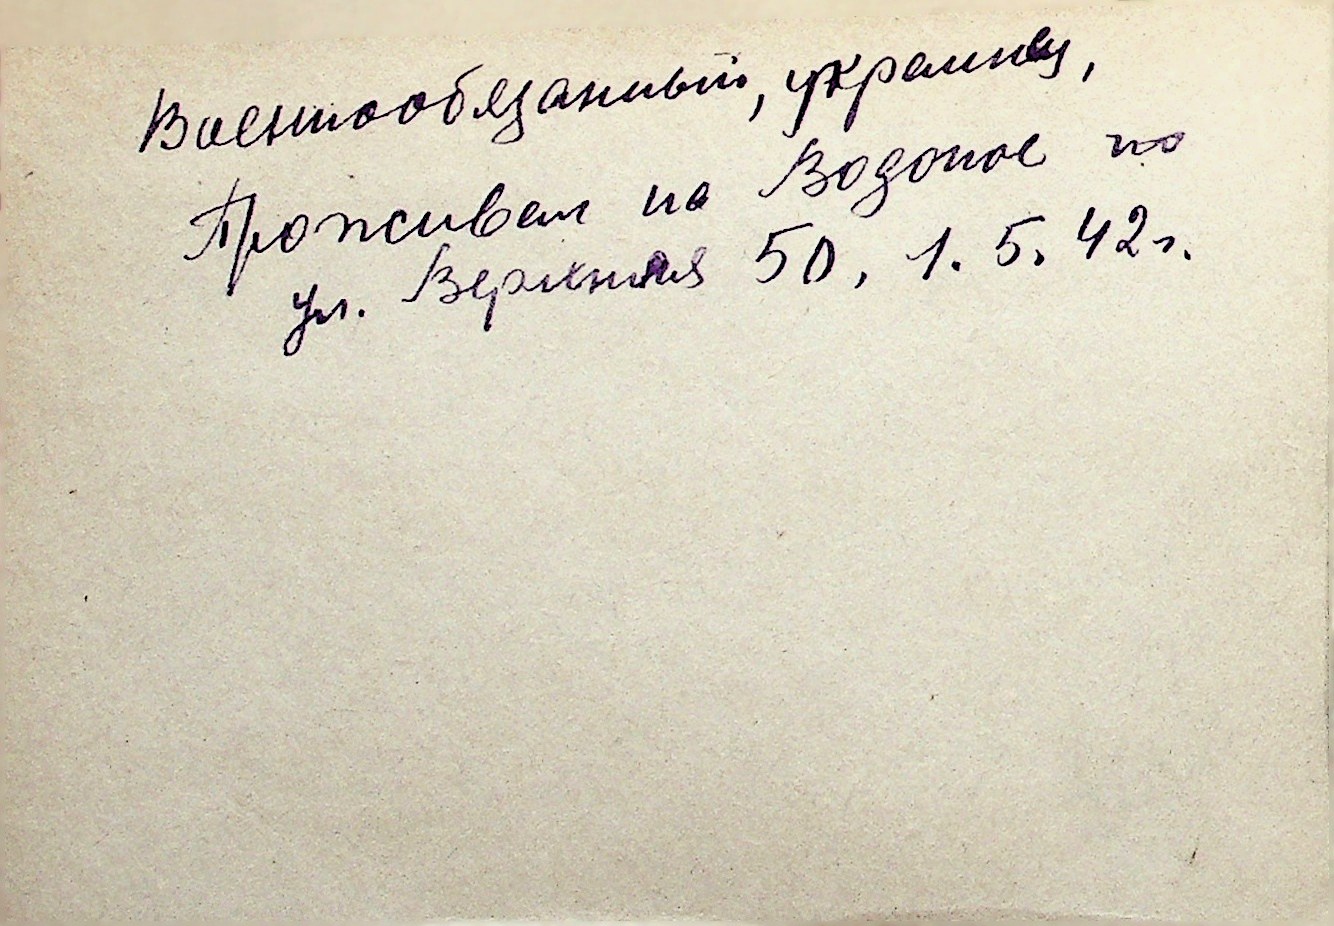 Военнообязанный, украинец,
Проживал на Водопое по
ул. Верхняя 50, 1. 5. 42 г.